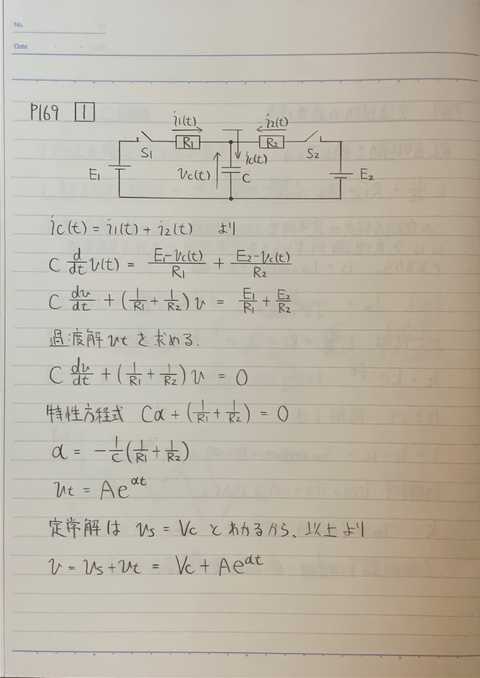 No.
Date
P169 1
i₁(t) i₂(t)
S₁ R₁ R₂ S₂
E₁ v_c(t) i_c(t) C E₂
i_c(t) = i₁(t) + i₂(t) より
C d/dt v(t) = (E₁-v_c(t))/R₁ + (E₂-v_c(t))/R₂
C dv/dt + (1/R₁ + 1/R₂) v = E₁/R₁ + E₂/R₂
過渡解 v_t を求める.
C dv/dt + (1/R₁ + 1/R₂) v = 0
特性方程式 Cα + (1/R₁ + 1/R₂) = 0
α = - 1/C (1/R₁ + 1/R₂)
v_t = Ae^αt
定常解は v_s = V_c とわかるから、以上より
v = v_s + v_t = V_c + Ae^αt